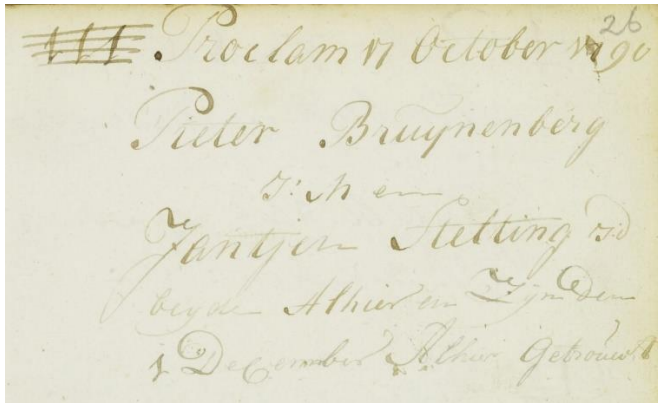 26
III Proclam 17 October 1790
Pieter Bruijnenberg
J: M en
Jantjen Stelting J:d
beyde Alhier en Zijn Den
1 December Alhier Getrouwt